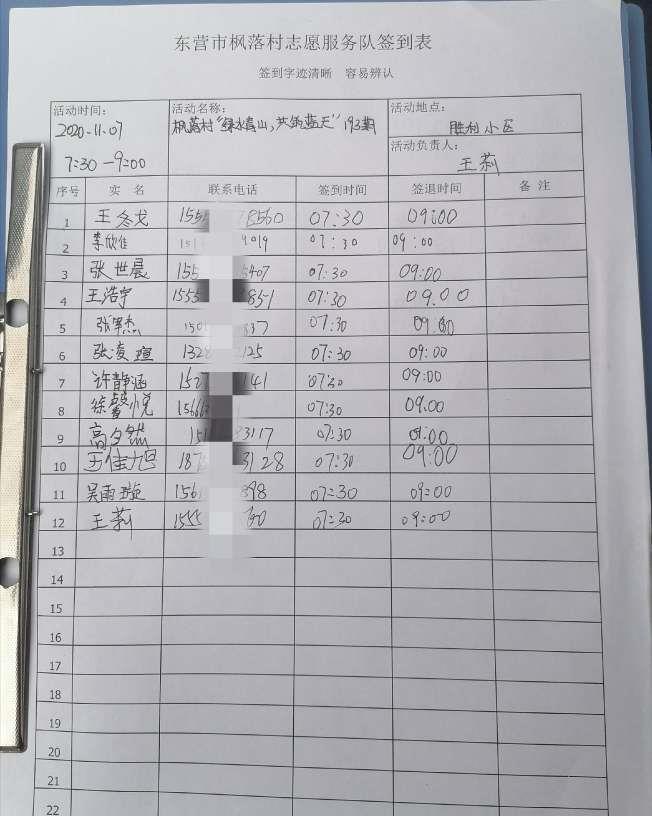 东营市枫落村志愿服务队签到表
签到字迹清晰 容易辨认
活动时间:
2020-11-07
7:30-9:00
活动名称:
枫落村“绿水青山,共筑蓝天”193期
活动地点:
胜利小区
活动负责人:
王莉
序号 实 名 联系电话 签到时间 签退时间 备 注
1 王冬戈 155 8560 07:30 09:00
2 李欣佳 151 4019 07:30 09:00
3 张世晨 155 5407 07:30 09:00
4 王浩宇 1555 851 07:30 09.00
5 张 杰 150 837 07:30 09:00
6 张凌瑄 1328 2125 07:30 09:00
7 许静涵 152 141 07:30 09:00
8 徐馨悦 1566 07:30 09.00
9 高夕然 151 33117 07:30 09:00
10 王佳旭 187 3128 07:30 09:00
11 吴雨璇 156 898 07:30 09:00
12 王莉 1555 60 07:30 09:00
13
14
15
16
17
18
19
20
21
22